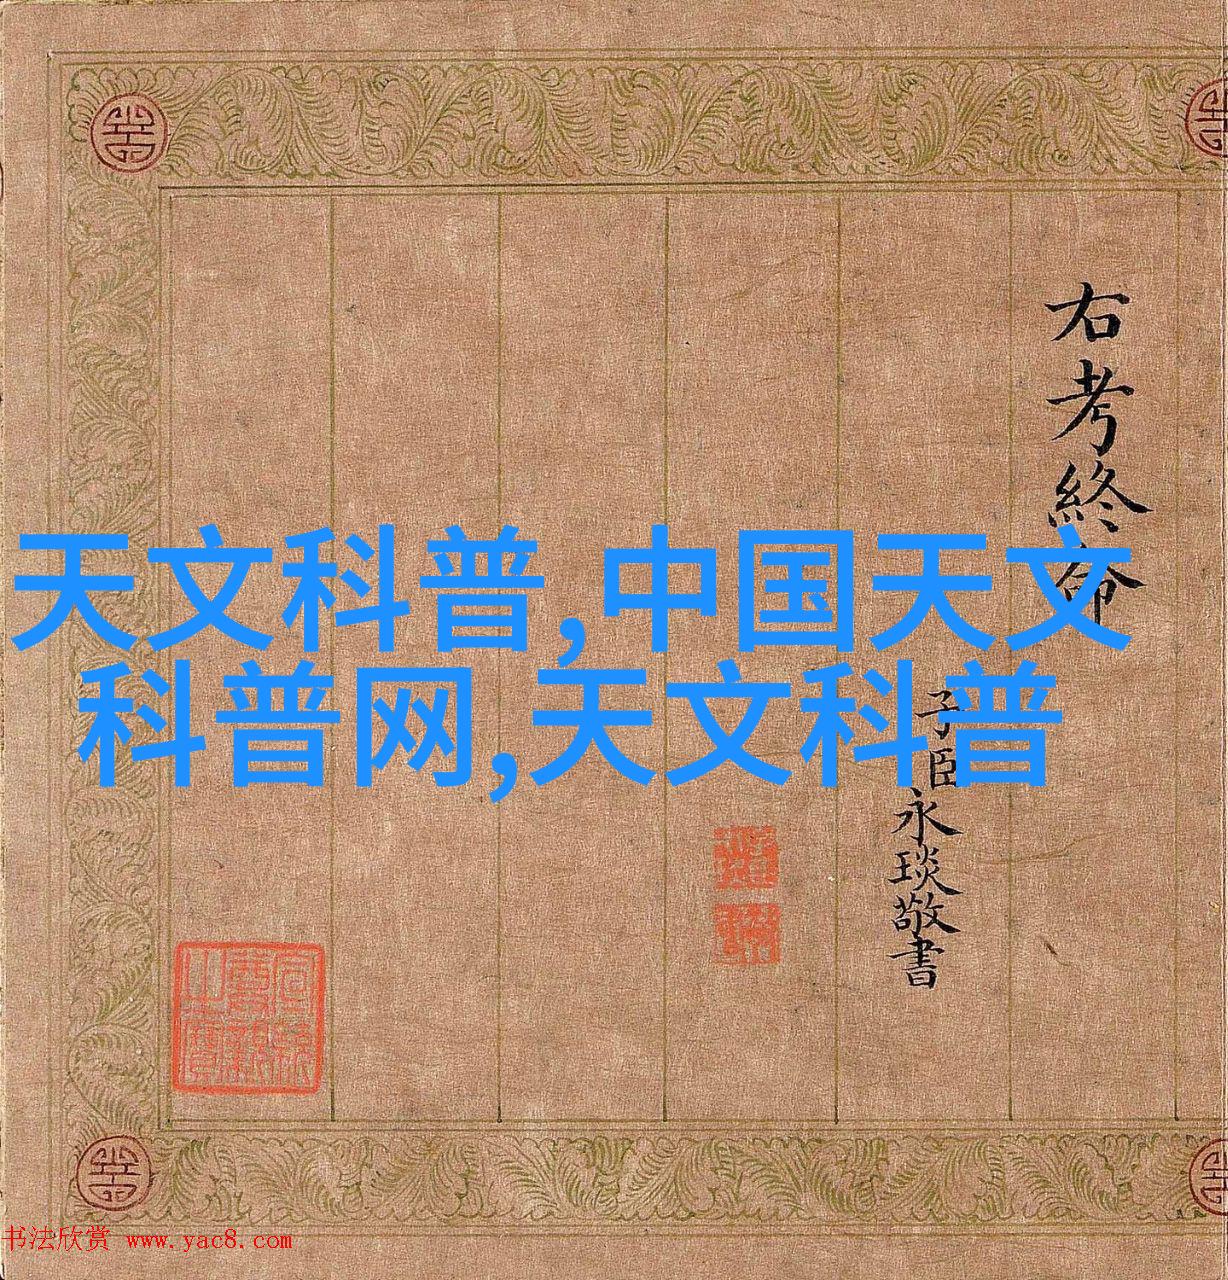 右考終命
子臣永琰敬書
天文科普,中国天文
科普网,天文科普
书法欣赏 www.yac8.com